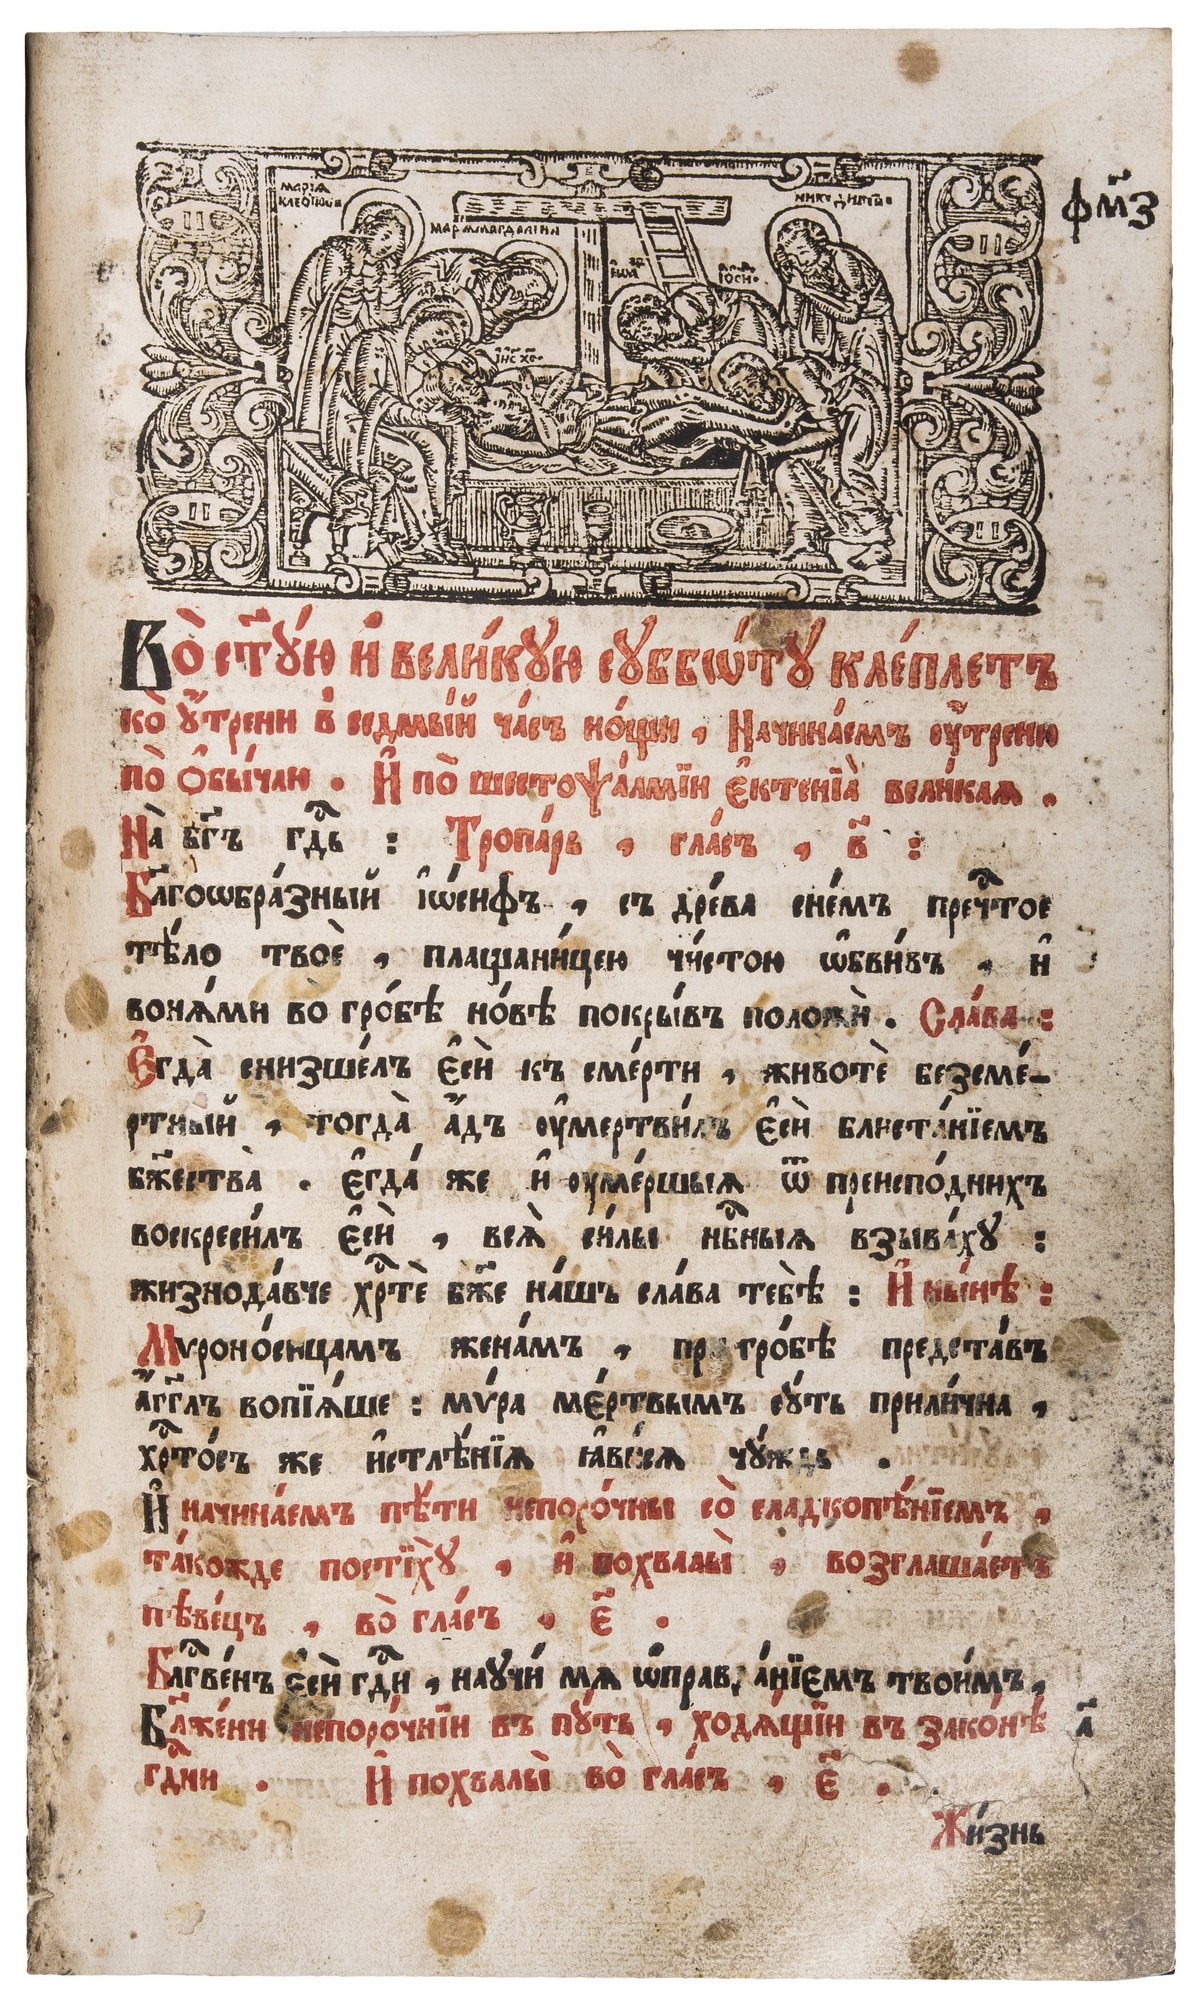 МАРІЯ
КЛЕОПОВА
МАРІЯ МАГДАЛИНИ
НИКОДИМЪ
ІѠА
ІОСИ
І҃ИС Х҃С
ф҃мз
Во̀ ст҃ꙋ́ю и҆ вели́кꙋю сꙋббѡ́тꙋ кле́плетъ
ко̀ ᲂу҆́трени в̾ седмы́й ча́съ но́щи , Начина́емъ ᲂу҆́треню
по̀ ѻ҆бы́чаю . И҆ по̀ шестоѱа́лмїи є҆ктенїа̀ вели́каѧ .
На̀ бг҃ъ гдⷭ҇ь : Тропа́рь , гла́съ , в҃ :
Бл҃гоѡбра́зный і҆ѡ́сифъ , съ дре́ва сне́мъ пречⷭ҇тое
тѣ́ло твоѐ , плащани́цею чи́стою ѡ҆бви́въ , и҆
вонѧ́ми во гро́бѣ но́вѣ покры́въ положѝ . Сла́ва :
Є҆гда̀ снизше́лъ є҆сѝ къ сме́рти , животѐ безсме́-
ртный , тогда̀ а҆́дъ ᲂу҆мертви́лъ є҆сѝ блиста́нїемъ
бж҃ества̀ . Є҆гда́ же и҆ ᲂу҆ме́ршыѧ ѿ преиспо́дних̾
воскреси́лъ є҆сѝ , всѧ̀ си́лы нбⷭ҇ныѧ взыва́хꙋ :
жизнода́вче хрⷭ҇тѐ бж҃е на́шъ сла́ва тебѣ̀ : И҆ ны́нѣ :
Мѵроно́сицамъ жена́мъ , при гро́бѣ предста́въ
а҆́гг҃лъ вопїѧ́ше : мѵ́ра ме́ртвымъ сꙋ́ть прили́чна ,
хрⷭ҇то́съ же и҆стлѣ́нїѧ ꙗ҆ви́сѧ чꙋ́ждь .
И҆ начина́емъ пѣ́ти непоро́чны со̀ сладкопѣ́нїемъ ,
та́кожде постїхꙋ̀ , и҆ похвалы̀ , возглаша́етъ
пѣве́цъ , во̀ гла́съ , є҃ .
Блгⷭ҇ве́нъ є҆сѝ гдⷭ҇и , наꙋчи́ мѧ ѡ҆правда́нїемъ твои́мъ ,
Бл҃же́ни непоро́чнїи въ пꙋ́ть , ходѧ́щїи въ зако́нѣ а҃
гдⷭ҇ни . И҆ похвалы̀ во̀ гла́съ , є҃ .
Жи́знь